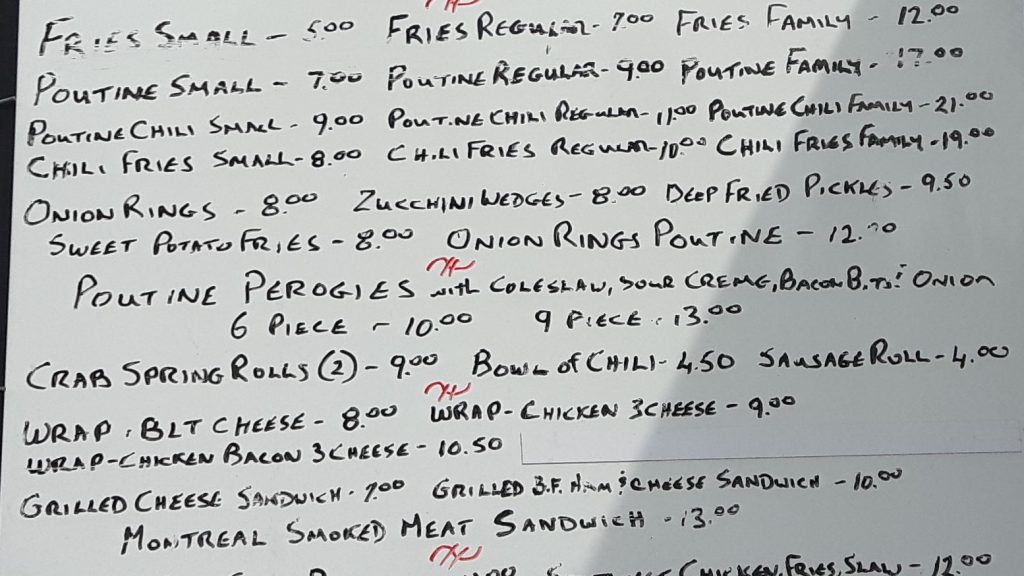 FRIES SMALL - 5.00 FRIES REGULAR - 7.00 FRIES FAMILY - 12.00
POUTINE SMALL - 7.00 POUTINE REGULAR - 9.00 POUTINE FAMILY -
POUTINE CHILI SMALL - 9.00 POUTINE CHILI REGULAR - 11.00 POUTINE CHILI FAMILY - 21.00
CHILI FRIES SMALL - 8.00 CHILI FRIES REGULAR - 10.00 CHILI FRIES FAMILY - 19.00
ONION RINGS - 8.00 ZUCCHINI WEDGES - 8.00 DEEP FRIED PICKLES - 9.50
SWEET POTATO FRIES - 8.00 ONION RINGS POUTINE - 12.00
POUTINE PEROGIES with COLESLAW, SOUR CREME, BACON BITS & ONION
6 PIECE - 10.00 9 PIECE - 13.00
CRAB SPRING ROLLS (2) - 9.00 BOWL of CHILI - 4.50 SAUSAGE ROLL - 4.00
WRAP - BLT CHEESE - 8.00 WRAP - CHICKEN 3 CHEESE - 9.00
WRAP - CHICKEN BACON 3 CHEESE - 10.50
GRILLED CHEESE SANDWICH - 7.00 GRILLED B.F. HAM & CHEESE SANDWICH - 10.00
MONTREAL SMOKED MEAT SANDWICH - 13.00
CHICKEN, FRIES, SLAW - 12.00